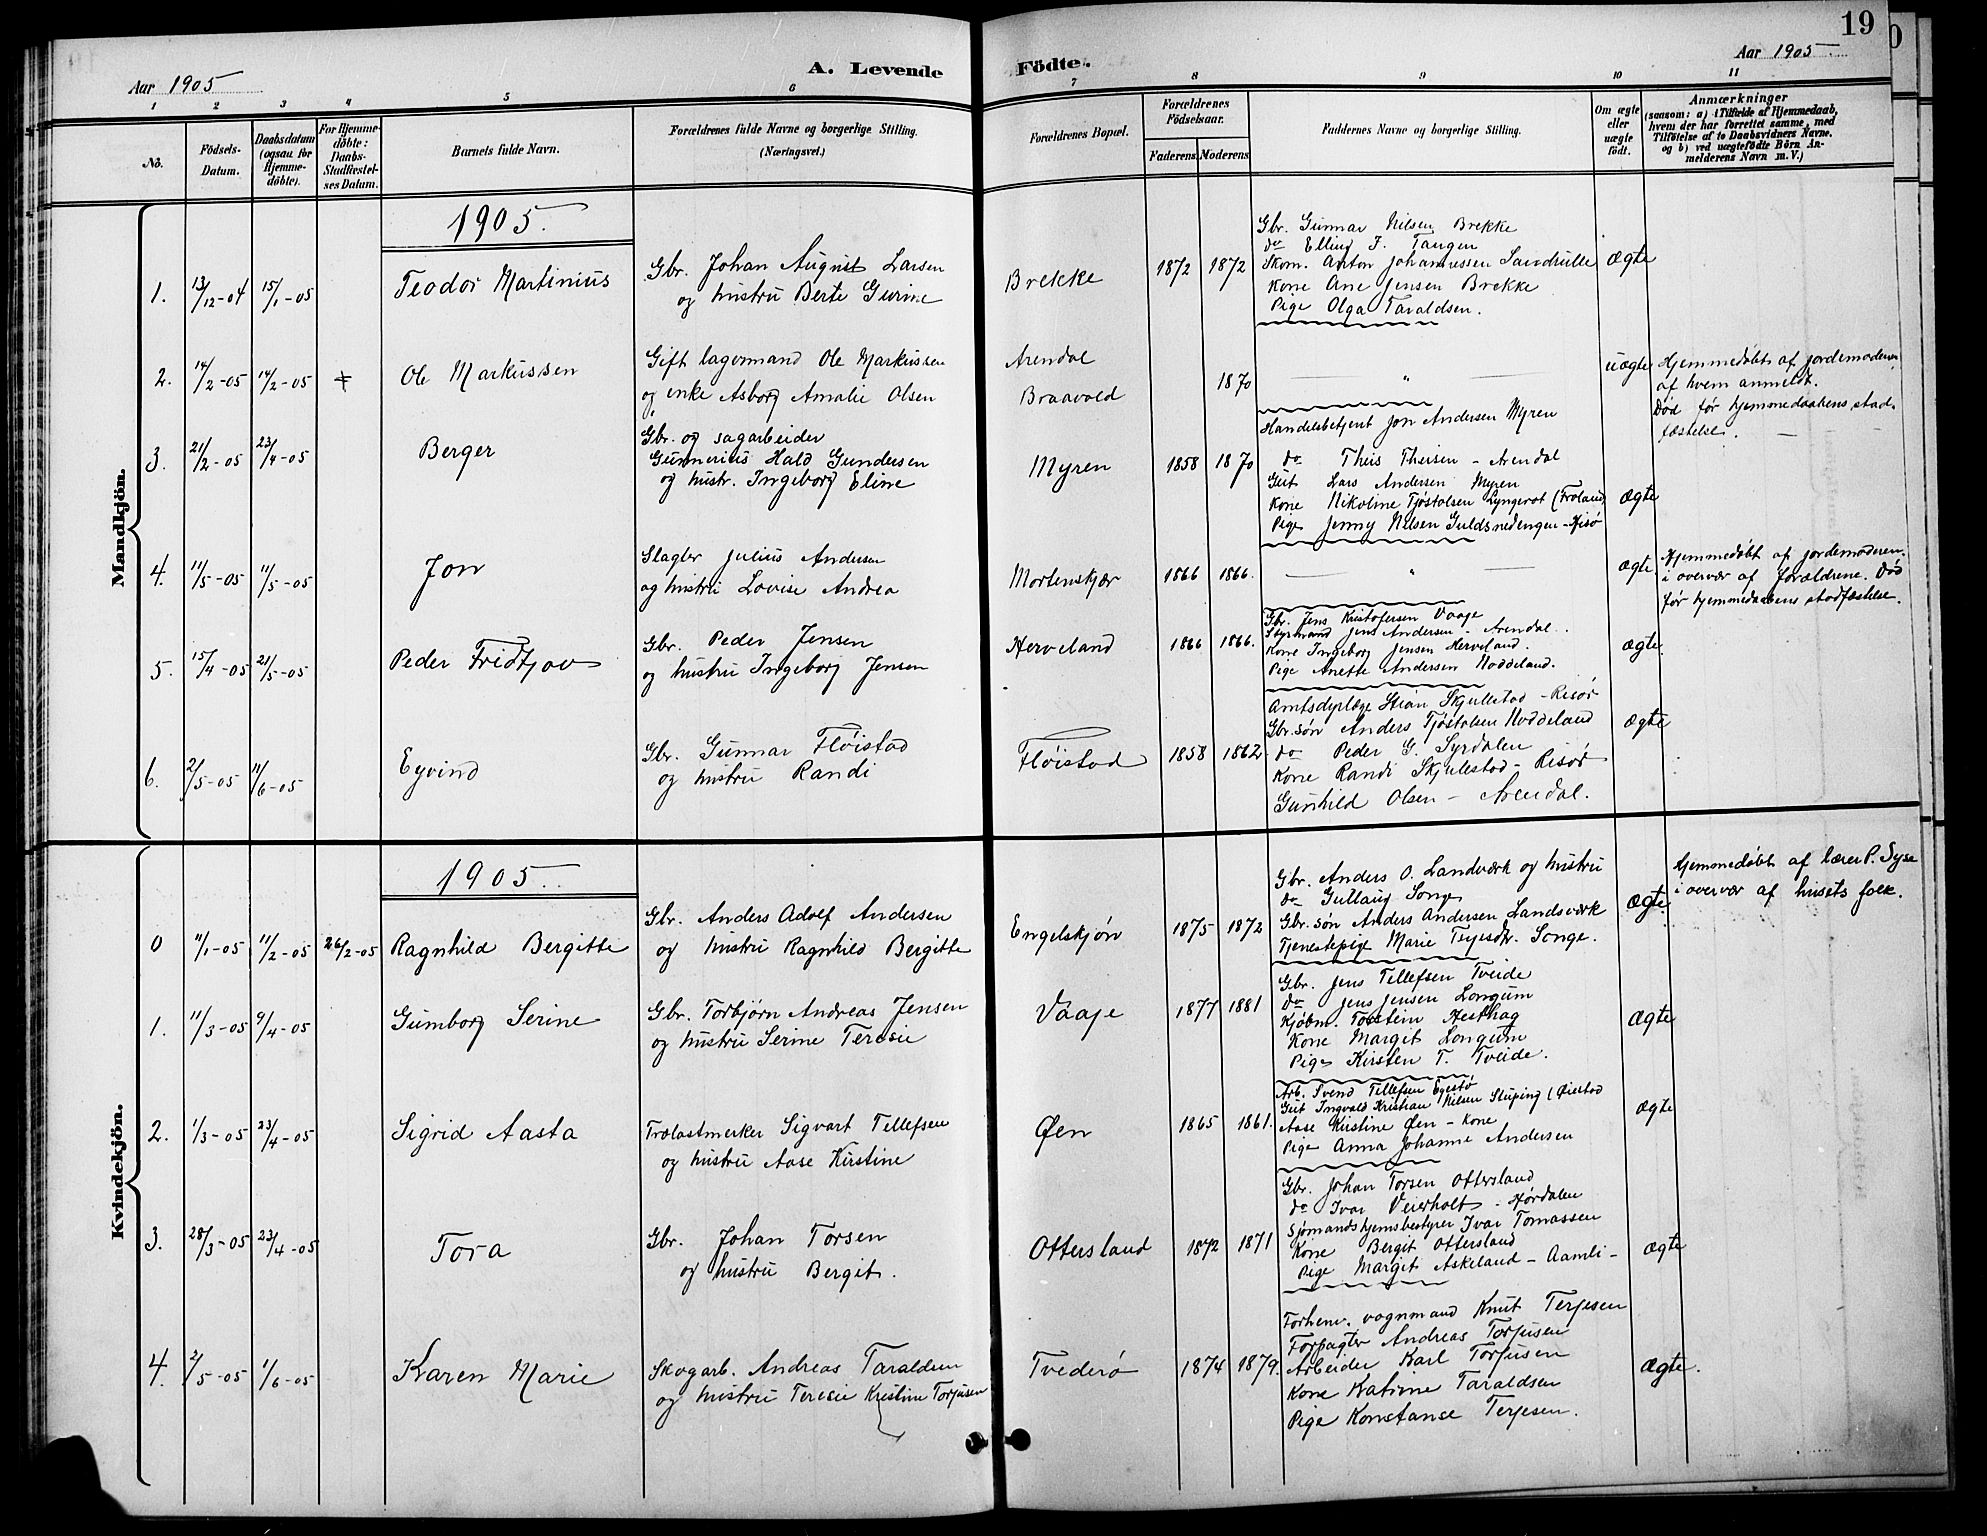 19
Aar 1905
A. Levende
Födte.
Aar 1905
1 2 3 4 5 6 7 8 9 10 11
No.
Födsels-
Datum.
Daabsdatum
(ogsaa for
Hjemme-
döbte).
For Hjemme-
döbte:
Daabs-
Stadfæstel-
ses Datum.
Barnets fulde Navn.
Forældrenes fulde Navne og borgerlige Stilling.
(Næringsvei.)
Forældrenes Bopæl.
Forældrenes
Födselsaar.
Faderens. Moderens.
Faddernes Navne og borgerlige Stilling.
Om ægte
eller
uægte
födt.
Anmærkninger
(saasom: a) i Tilfælde af Hjemmedaab,
hvem der har forrettet samme, med
Tilföielse af to Daabsvidners Navne,
og b) ved uægtefödte Börn An-
melderens Navn m. V.)
Mandkjön.
1905.
1. 13/12-04 15/1-05
Teodor Martinius
Gbr. Johan August Larsen
og hustru Berte Gurine
Brekke
1872 1872
Gbr. Gunnar Nilsen Brekke
do Elling J. Tangen
Skom. Anton Johannessen
Kone Ane Jensen Brekke
Pige Olga Taraldsen.
ægte
2. 14/2-05 14/2-05 +
Ole Markussen
Gift lagermand Ole Markussen
og enke Asborg Amalie Olsen
Arendal
Braavold
1870
— " —
uægte
Hjemmedøbt af jordemoderen,
af hvem anmeldt.
Død før hjemmedaabens stad-
fæstelse. —
3. 21/2-05 23/4-05
Berger
Gbr. og sagarbeider
Gunnerius Hald Gundersen
og hustr. Ingeborg Eline
Myren
1858 1870
Handelsbetjent Jon Andersen Myren
do Theis Theisen - Arendal
Gut Lars Andersen Myren
Kone Nikoline Tjøstolsen Lyngerot (Froland)
Pige Jenny Nilsen Guldsmedengen - Hisø
ægte
4. 11/5-05 11/5-05
Jon
Slagter Julius Andersen
og hustru Lovise Andrea
Mortenskjær
1866 1866.
— " —
ægte.
Hjemmedøbt af jordemoderen.
i overvær af forældrene. Død
før hjemmedaabens stadfæstelse.
5. 15/4-05 21/5-05
Peder Fridtjov
Gbr. Peder Jensen
og hustru Ingeborg Jensen
Herveland
1866 1866.
Gbr. Jens Kristofersen Vaage
Styrmand Jens Andersen - Arendal.
Kone Ingeborg Jensen Herveland.
Pige Anette Andersen Noddeland.
ægte.
6. 2/5-05 11/6-05
Eyvind
Gbr. Gunnar Fløistad
og hustru Randi
Fløistad
1858 1862
Amtsdyrlæge Stian Skjullestad - Risør
Gbr.søn Anders Tjøstolsen Noddeland
do Peder G. Syrdalen
Kone Randi Skjullestad - Risør
Gunhild Olsen - Arendal.
ægte
Kvindekjön.
1905.
0 11/1-05 11/2-05 26/2-05
Ragnhild Bergitte
Gbr. Anders Adolf Andersen
og hustru Ragnhild Bergitte
Engelskjøn
1875 1872
Gbr. Anders O. Landsværk og hustru
do Gullaug Songe
Gbr. søn Anders Andersen Landsværk
Tjenestepige Marie Terjesdtr. Songe.
ægte.
Hjemmedøbt af lærer P. Syse
i overvær af husets folk.
1. 11/3-05 9/4-05
Gumborg Serine
Gbr. Torbjørn Andreas Jensen
og hustru Serine Teresie
Vaaje
1877 1881
Gbr. Jens Tellefsen Tveide
do Jens Jensen Longum
Kjøbm. Torstein Hesthag
Kone Margit Longum
Pige Kirsten T. Tveide.
ægte
2. 1/3-05 23/4-05
Sigrid Aasta
Trælastmerker Sigvart Tellefsen
og hustru Aase Kirstine
Øen
1865 1861.
Arb. Svend Tellefsen
Gut Ingvald Kristian Nilsen (Øiestad
Aase Kirstine Øen - Kone
Pige Anna Johanne Andersen
ægte
3. 28/3-05 23/4-05
Tora
Gbr. Johan Torsen
og hustru Bergit.
Ottersland
1872 1871
Gbr. Johan Torsen Ottersland
do Ivar Veierholt - Hørdalen
Sjømandshjemsbestyrer Ivar Tomassen
Kone Bergit Ottersland
Pige Margit Askeland - Aamli -
ægte
4. 2/5-05 1/6-05
Karen Marie
Skogarb. Andreas Taraldsen
og hustru Teresie Kristine Torjusen
Tvederø
1874 1879.
Forhenv. vognmand Knut Terjesen
Forpagter Andreas Torjusen
Arbeider Karl Torjusen
Kone Katrine Taraldsen
Pige Konstanse Terjesen.
ægte.